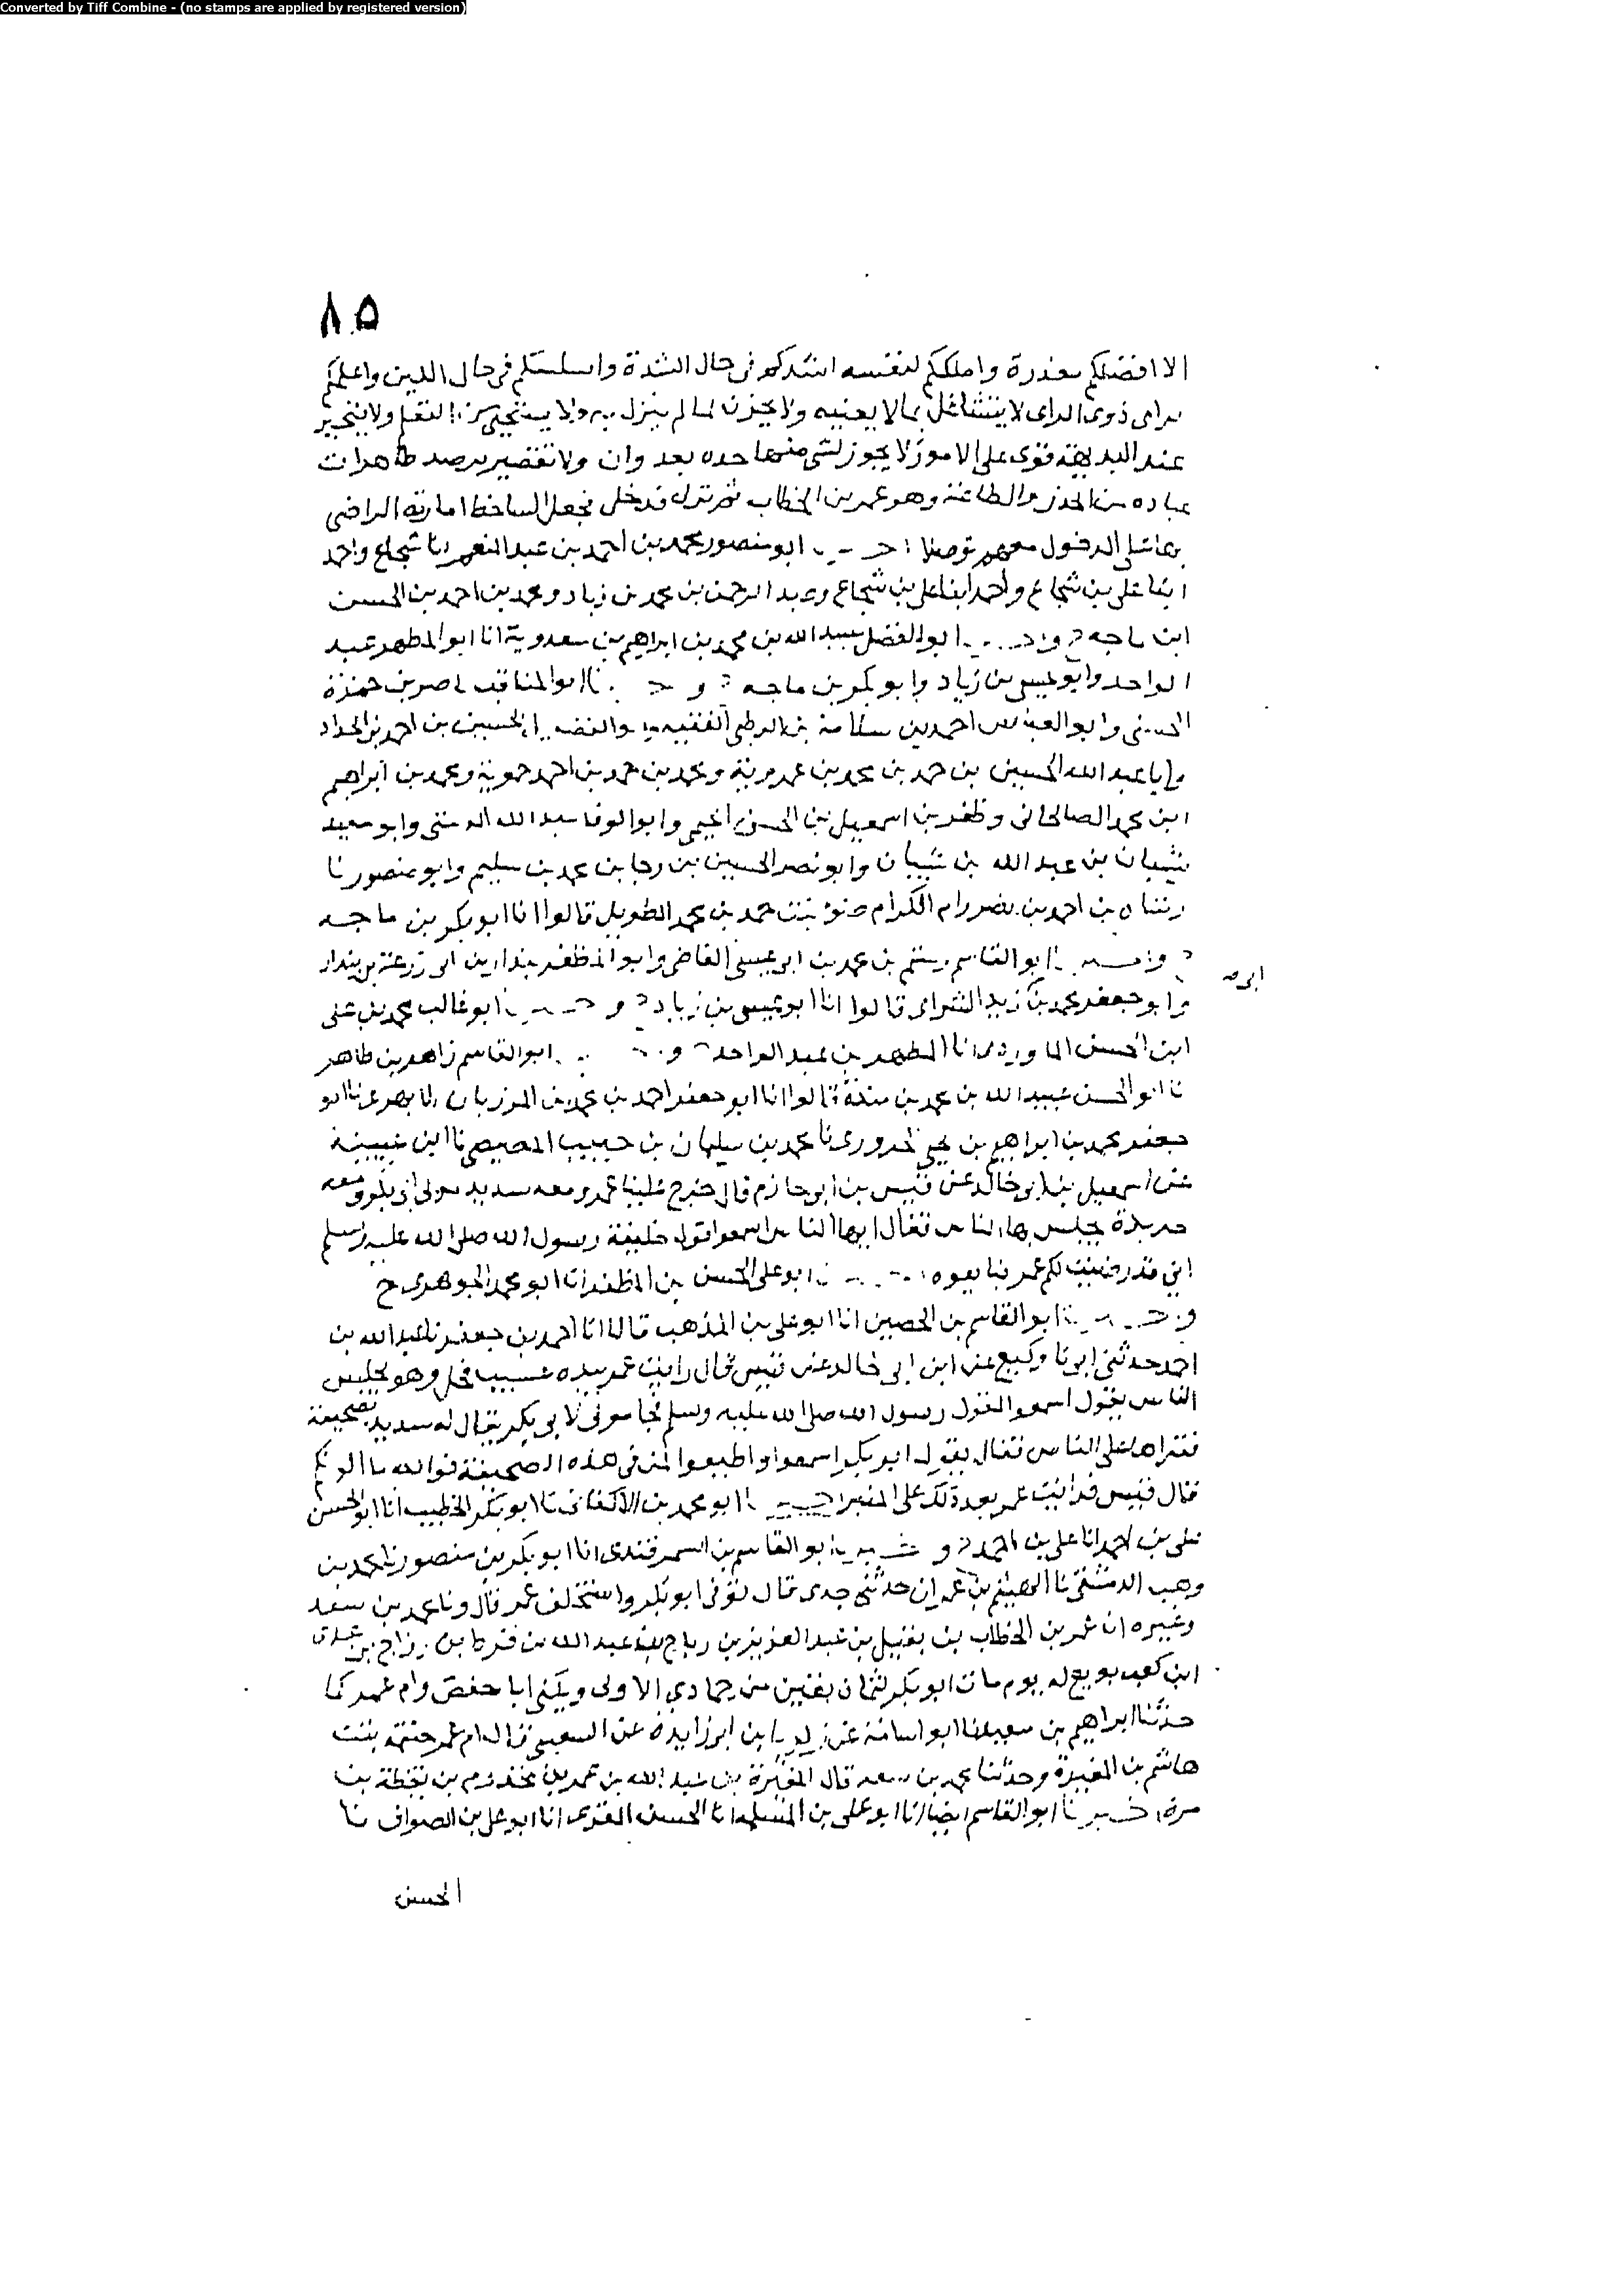 Converted by Tiff Combine - (no stamps are applied by registered version)
٨٥
الا افضلكم مقدرة واملككم لنفسه اشدكم فى حال الشدة واسلسكم فى حال اللين واعلمكم
براى ذوى الراى لا يتشاغل بما لا يعنيه ولا يحزن لما لم ينزل به ولا يستحيى من التعلم ولا يتحير
عند البديهة قوى على الامور لا يجوز لشى منها حده بعدوان ولا تقصير يرصد
عتاده من الحذر والطاعة وهو عمر بن الخطاب ثم نزل فدخل فجعل الساخط امارته الراضى
بها على الدخول معهم توصلا ابو منصور محمد بن احمد بن عبد المنعم انا شجاع واحمد
ابنا على بن شجاع واحمد ابنا على بن شجاع وعبد الرحمن بن محمد بن زياد ومحمد بن احمد بن الحسن
ابن ماجه ابو الفضل عبيد الله بن محمد بن ابراهيم بن سعدوية انا ابو المطهر عبد
الواحد وابو عيسى بن زياد وابو بكر بن ماجه ابو المناقب ناصر بن حمزة
الحسينى وابو العباس احمد بن سلامة بن الرطبى الفقيه الحسين بن احمد بن الحداد
عبد الله الحسين بن حمد بن محمد بن عمروية ومحمد بن حمد بن احمد حموية ومحمد بن ابراهيم
ابن محمد الصالحانى وظفر بن اسمعيل بن الحسن وابو الوفا عبد الله الدشتى وابو سعيد
شيبان بن عبد الله بن شيبان وابو نصر الحسين بن رجا بن محمد بن سليم وابو منصور
بن احمد بن نصر وام الكرام ضوء بنت حمد بن محمد الطويل قالوا انا ابو بكر بن ماجه
ابو القاسم رستم بن محمد بن ابى عيسى القاضى وابو المظفر بندار بن ابى زرعة بن بندار
ابى صـ
وابو جعفر محمد بن زيد الشعرانى قالوا انا ابو عيسى بن زياد ابو غالب محمد بن على
ابن الحسن الماوردى انا المطهر بن عبد الواحد ابو القاسم زاهر بن طاهر
نا ابو الحسن عبيد الله بن محمد بن مندة قالوا انا ابو جعفر احمد بن محمد بن المرزبان انا ابو
جعفر محمد بن ابراهيم بن يحيى الحزورى نا محمد بن سليمان بن حبيب المصيصى نا ابن عيينة
عن اسمعيل بن ابى خالد عن قيس بن ابى حازم قال خرج علينا عمر ومعه سديد مولى ابى بكر ومعه
جريدة يجلس بها الناس فقال ايها الناس اسمعوا قول خليفة رسول الله صلى الله عليه وسلم
انى قد رضيت لكم عمر فبايعوه ابو على الحسن بن المظفر انا ابو محمد الجوهرى ح
و ابو القاسم بن الحصين انا ابو على بن المذهب قالا انا احمد بن جعفر نا عبد الله بن
احمد حدثنى ابى نا وكيع عن ابن ابى خالد عن قيس قال رايت عمر بيده عسيب نخل وهو يجلس
الناس يقول اسمعوا لقول رسول الله صلى الله عليه وسلم فجا مولى لابى بكر يقال له سديد بصحيفة
فقراها على الناس فقال يقول ابو بكر اسمعوا واطيعوا لمن فى هذه الصحيفة فوالله ما الوتكم
قال قيس فرايت عمر بعد ذلك على المنبر ابو محمد بن الاكفانى نا ابو بكر الخطيب انا ابو الحسن
على بن احمد انا على بن احمد و ابو القاسم بن السمرقندى انا ابو بكر بن منصور نا محمد بن
وهب الدمشقى نا الهيثم بن عمران حدثنى جدى قال توفى ابو بكر واستخلف عمر قال ونا محمد بن سعد
وغيره ان عمر بن الخطاب بن نفيل بن عبد العزيز بن رباح بن عبد الله بن قرط بن رزاح بن عدى
ابن كعب بويع له يوم مات ابو بكر لثمان بقين من جمادى الاولى ويكنى ابا حفص وام عمر كما
حدثنا ابراهيم بن سعيد نا ابو اسامة عن ابن ابى زايدة عن الشعبى قال ام عمر حنتمة بنت
هاشم بن المغيرة وحدثنا محمد بن سعد قال المغيرة بن عبد الله بن عمر بن مخزوم بن يقظة بن
مرة ابو القاسم ايضا انا ابو على بن المسلمة انا الحسن المقرى انا ابو على بن الصواف نا
الحسن